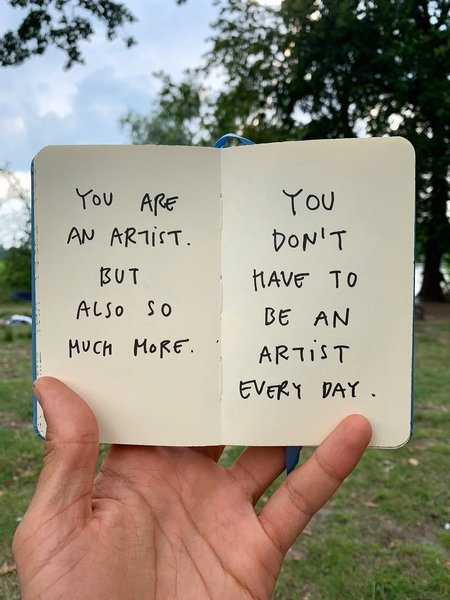 YOU ARE
AN ARTIST.
BUT
ALSO SO
MUCH MORE.
YOU
DON'T
HAVE TO
BE AN
ARTIST
EVERY DAY.